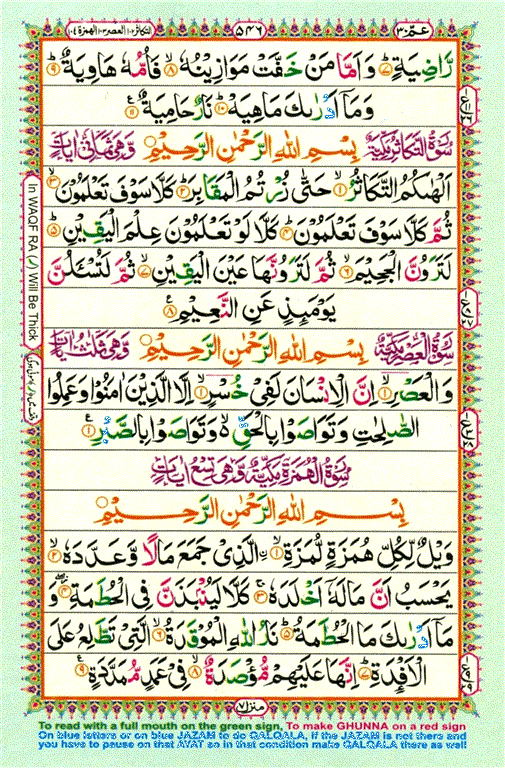 التكاثر ١٠٢ العصر ١٠٣ الهمزة ١٠٤
٥٤٦
عمّ ٣٠
رَّاضِيَةٍ ؕ‏﴿۷﴾ وَاَمَّا مَنۡ خَفَّتۡ مَوَازِيۡنُهٗ ۙ‏﴿۸﴾ فَاُمُّهٗ هَاوِيَةٌ ؕ‏﴿۹﴾
وَمَاۤ اَدۡرٰٮكَ مَاهِيَهۡ ؕ‏﴿۱۰﴾ نَارٌ حَامِيَةٌ ﴿۱۱﴾
سُوۡرَةُ التَّكَاثُرِ مَكِّيَّةٌ بِسۡمِ اللّٰهِ الرَّحۡمٰنِ الرَّحِيۡمِ وَّهِىَ ثَمَانِىۡ اٰيَاتٍ
اَلۡهٰٮكُمُ التَّكَاثُرُ ۙ‏﴿۱﴾ حَتّٰى زُرۡتُمُ الۡمَقَابِرَ ؕ‏﴿۲﴾ كَلَّا سَوۡفَ تَعۡلَمُوۡنَ ۙ‏﴿۳﴾
ثُمَّ كَلَّا سَوۡفَ تَعۡلَمُوۡنَ ؕ‏﴿۴﴾ كَلَّا لَوۡ تَعۡلَمُوۡنَ عِلۡمَ الۡيَقِيۡنِ ؕ‏﴿۵﴾
لَتَرَوُنَّ الۡجَحِيۡمَ ۙ‏﴿۶﴾ ثُمَّ لَتَرَوُنَّهَا عَيۡنَ الۡيَقِيۡنِ ۙ‏﴿۷﴾ ثُمَّ لَتُسۡــَٔلُنَّ
يَوۡمَٮِٕذٍ عَنِ النَّعِيۡمِ ﴿۸﴾
سُوۡرَةُ الۡعَصۡرِ مَكِّيَّةٌ بِسۡمِ اللّٰهِ الرَّحۡمٰنِ الرَّحِيۡمِ وَّهِىَ ثَلٰثُ اٰيَاتٍ
وَالۡعَصۡرِ ۙ‏﴿۱﴾ اِنَّ الۡاِنۡسَانَ لَفِىۡ خُسۡرٍ ۙ‏﴿۲﴾ اِلَّا الَّذِيۡنَ اٰمَنُوۡا وَعَمِلُوا
الصّٰلِحٰتِ وَتَوَاصَوۡا بِالۡحَقِّ ۙ وَتَوَاصَوۡا بِالصَّبۡرِ
سُوۡرَةُ الۡهُمَزَةِ مَكِّيَّةٌ وَّهِىَ تِسۡعُ اٰيَاتٍ
بِسۡمِ اللّٰهِ الرَّحۡمٰنِ الرَّحِيۡمِ
وَيۡلٌ لِّـكُلِّ هُمَزَةٍ لُّمَزَةِ ۙ‏﴿۱﴾ اۨلَّذِىۡ جَمَعَ مَالًا وَّعَدَّدَهٗ ۙ‏﴿۲﴾
يَحۡسَبُ اَنَّ مَالَهٗۤ اَخۡلَدَهٗ ۚ‏﴿۳﴾ كَلَّا لَيُنۡۢبَذَنَّ فِى الۡحُطَمَةِ ۖ‏﴿۴﴾ وَ
مَاۤ اَدۡرٰٮكَ مَا الۡحُطَمَةُ ؕ‏﴿۵﴾ نَارُ اللّٰهِ الۡمُوۡقَدَةُ ۙ‏﴿۶﴾ الَّتِىۡ تَطَّلِعُ عَلَى
الۡاَفۡـِٕدَةِ ؕ‏﴿۷﴾ اِنَّهَا عَلَيۡهِمۡ مُّؤۡصَدَةٌ ۙ‏﴿۸﴾ فِىۡ عَمَدٍ مُّمَدَّدَةٍ ﴿۹﴾
منزل ٧
In WAQF RA (ر) Will Be Thick
To read with a full mouth on the green sign, To make GHUNNA on a red sign
On blue letters or on blue JAZAM to do QALQALA, if the JAZAM is not there and
you have to pause on that AYAT so in that condition make QALQALA there as well